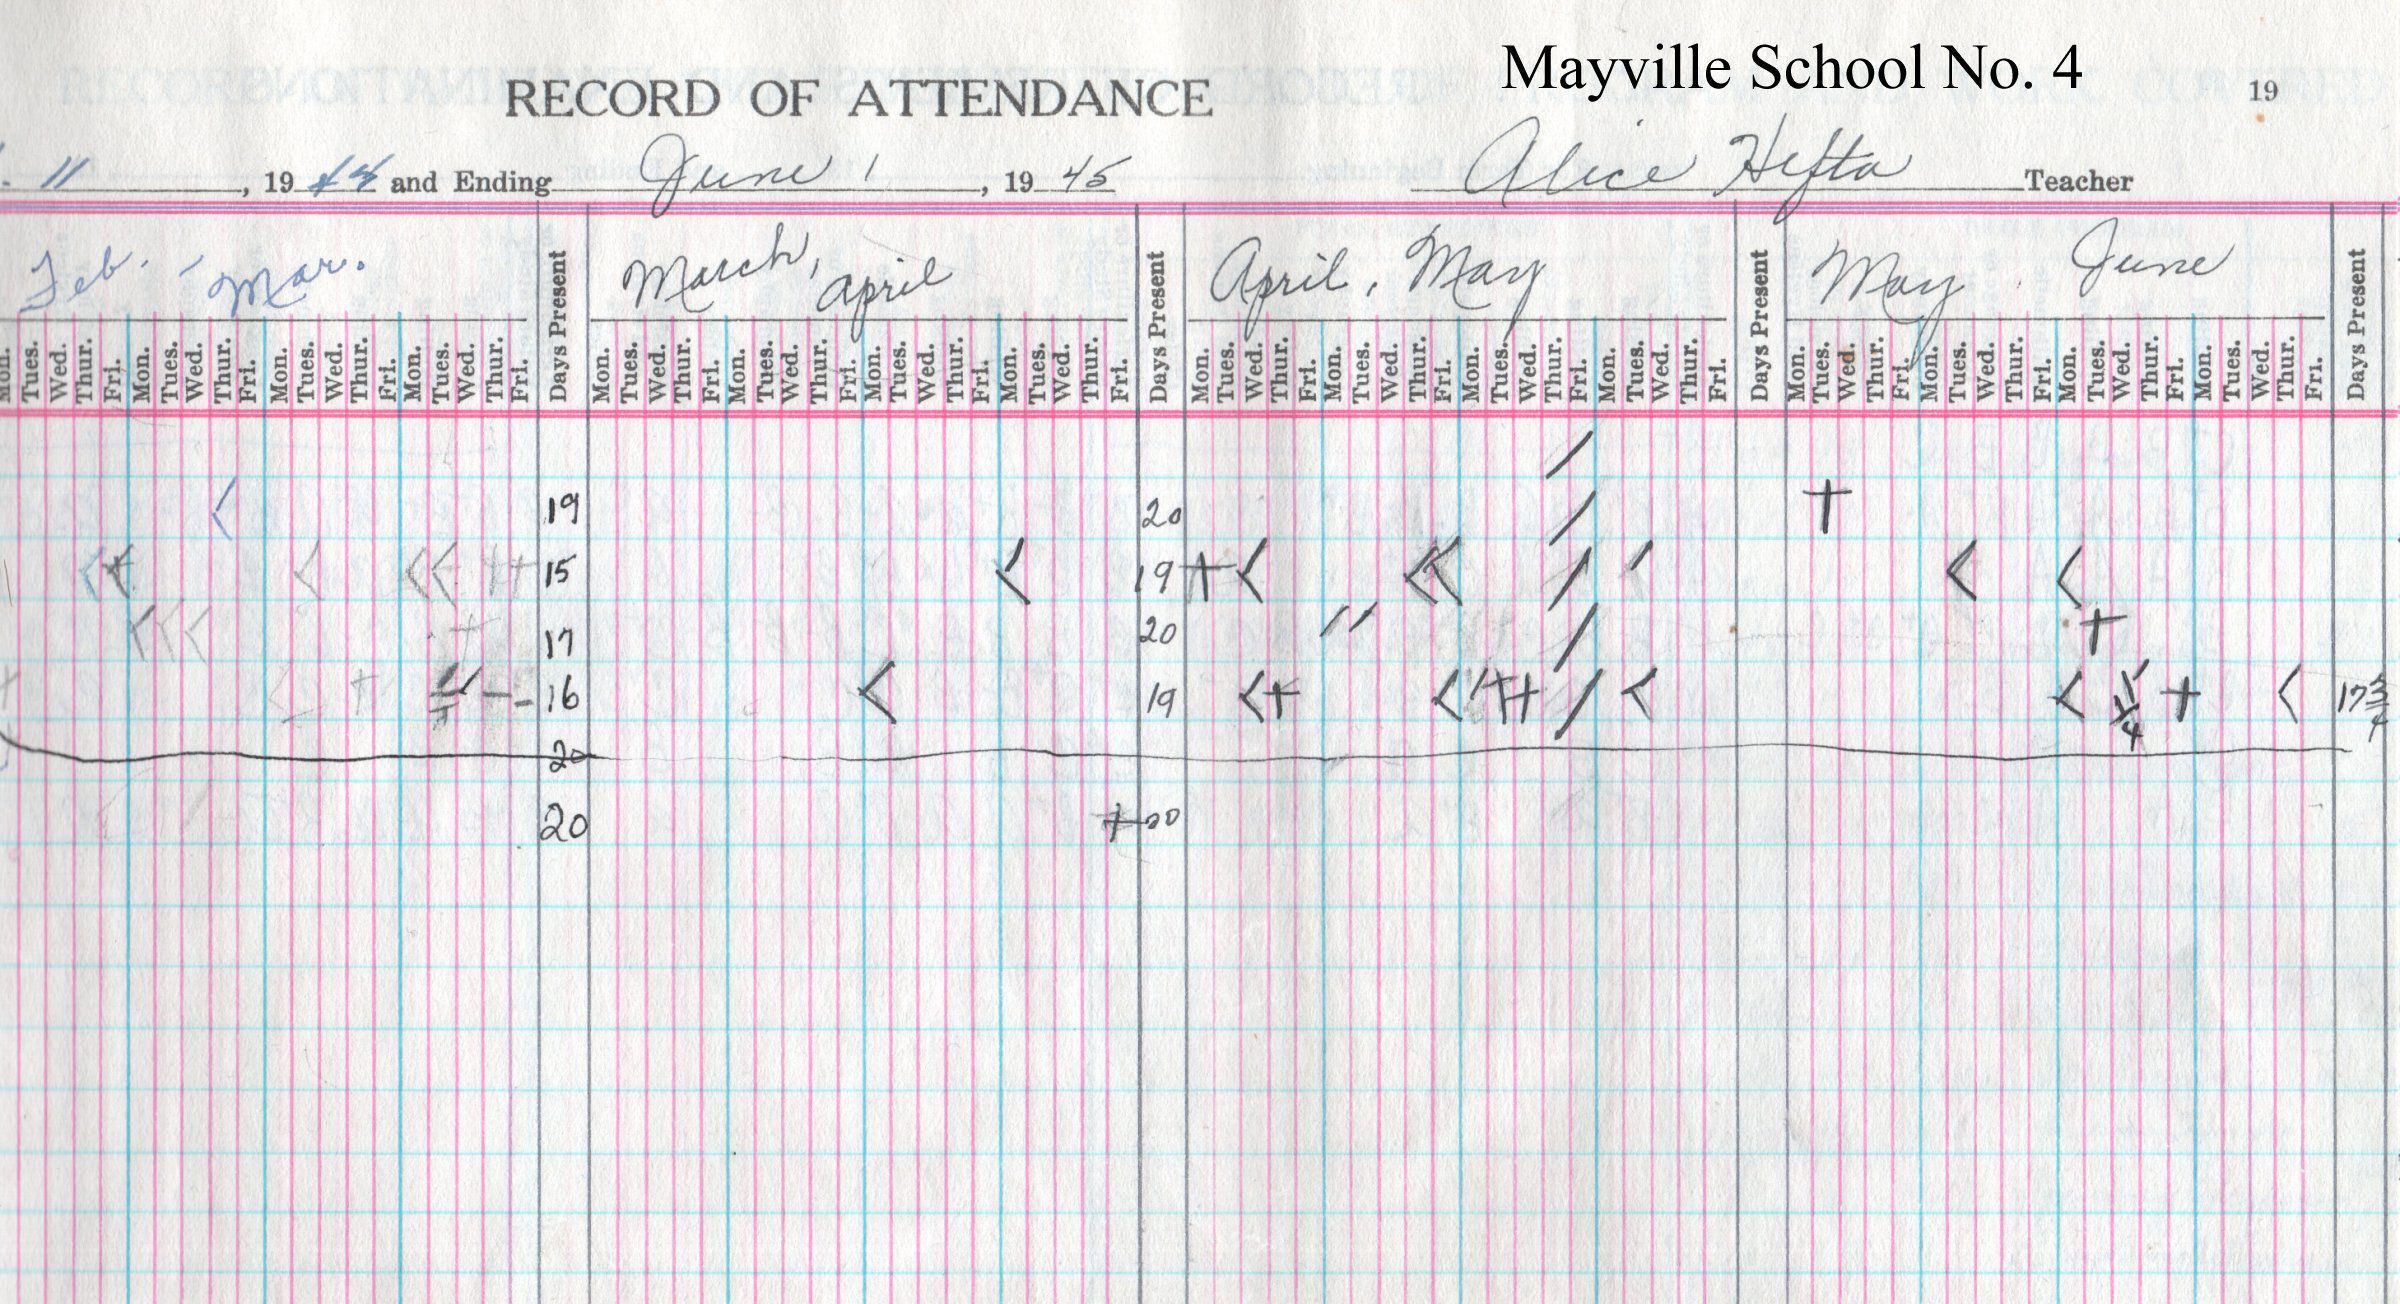 Mayville School No. 4
RECORD OF ATTENDANCE 19
. 11, 1944 and Ending June 1, 1945 Alice Hefta Teacher
Feb. - Mar. Days Present March, April Days Present April, May Days Present May June Days Present
Mon. Tues. Wed. Thur. Fri. Mon. Tues. Wed. Thur. Fri. Mon. Tues. Wed. Thur. Fri. Mon. Tues. Wed. Thur. Fri. Mon. Tues. Wed. Thur. Fri. Mon. Tues. Wed. Thur. Fri. Mon. Tues. Wed. Thur. Fri. Mon. Tues. Wed. Thur. Fri. Mon. Tues. Wed. Thur. Fri. Mon. Tues. Wed. Thur. Fri. Mon. Tues. Wed. Thur. Fri. Mon. Tues. Wed. Thur. Fri. Mon. Tues. Wed. Thur. Fri. Mon. Tues. Wed. Thur. Fri. Mon. Tues. Wed. Thur. Fri. Mon. Tues. Wed. Thur. Fri.
19 20
15 19
17 20
16 19 17 3/4
20
20 20